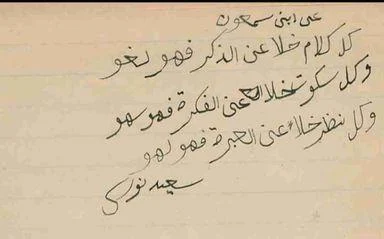 عن ابن سمعون
كل كلام خلا عن الذكر فهو لغو
وكل سكوت خلا عن الفكرة فهو سهو
وكل نظر خلا عن العبرة فهو لهو
سعيد نورسى